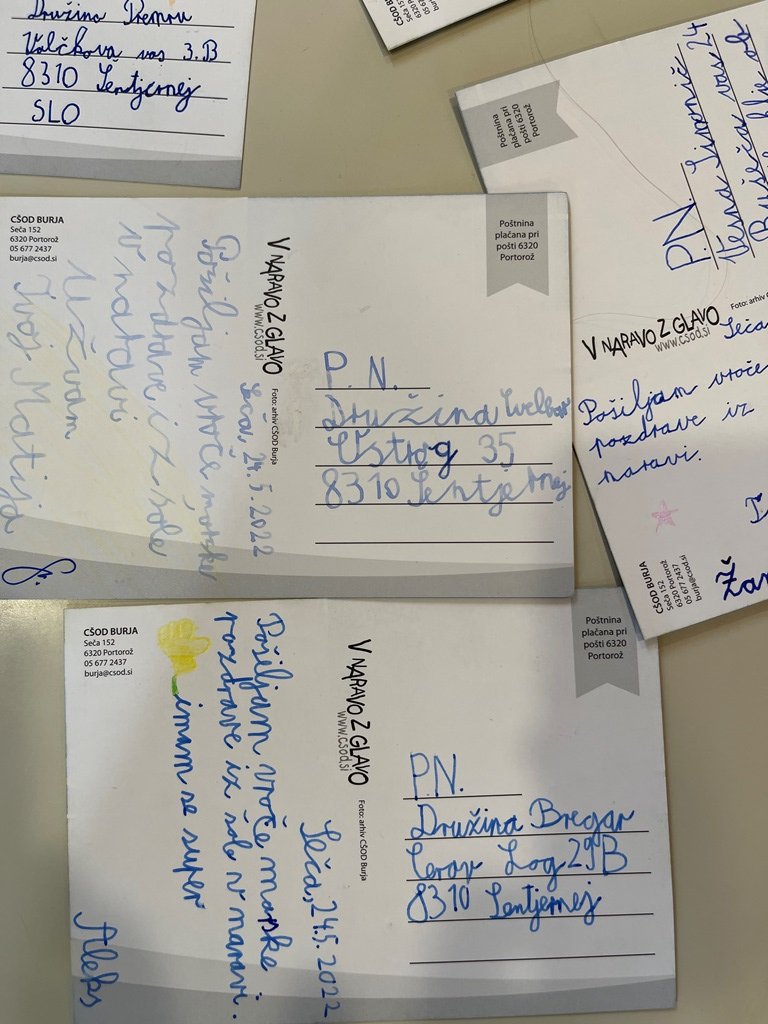 Družina
Volčkova vas 3.B
8310 Šentjernej
SLO
05 6
Poštnina
plačana pri
pošti 6320
Portorož
P.N.
Vesna
vas 24
V NARAVO Z GLAVO
www.csod.si
Foto: arhiv
Seča
Pošiljam vroče
pozdrave iz
narave.
CŠOD BURJA
Seča 152
6320 Portorož
05 677 2437
burja@csod.si
CŠOD BURJA
Seča 152
6320 Portorož
05 677 2437
burja@csod.si
Poštnina
plačana pri
pošti 6320
Portorož
V NARAVO Z GLAVO
www.csod.si
Foto: arhiv CŠOD Burja
Seča, 24.5.2022
Pošiljam vroče
pozdrave iz šole
v naravi
Uživam
Tvoj Matija
P. N.
Družina
Ostrog 35
8310 Šentjernej
CŠOD BURJA
Seča 152
6320 Portorož
05 677 2437
burja@csod.si
Poštnina
plačana pri
pošti 6320
Portorož
V NARAVO Z GLAVO
www.csod.si
Foto: arhiv CŠOD Burja
Seča, 24.5.2022
Pošiljam vroče
pozdrave iz šole v naravi.
imam se super
Aleks
P.N.
Družina Bregar
Cerov Log 29B
8310 Šentjernej